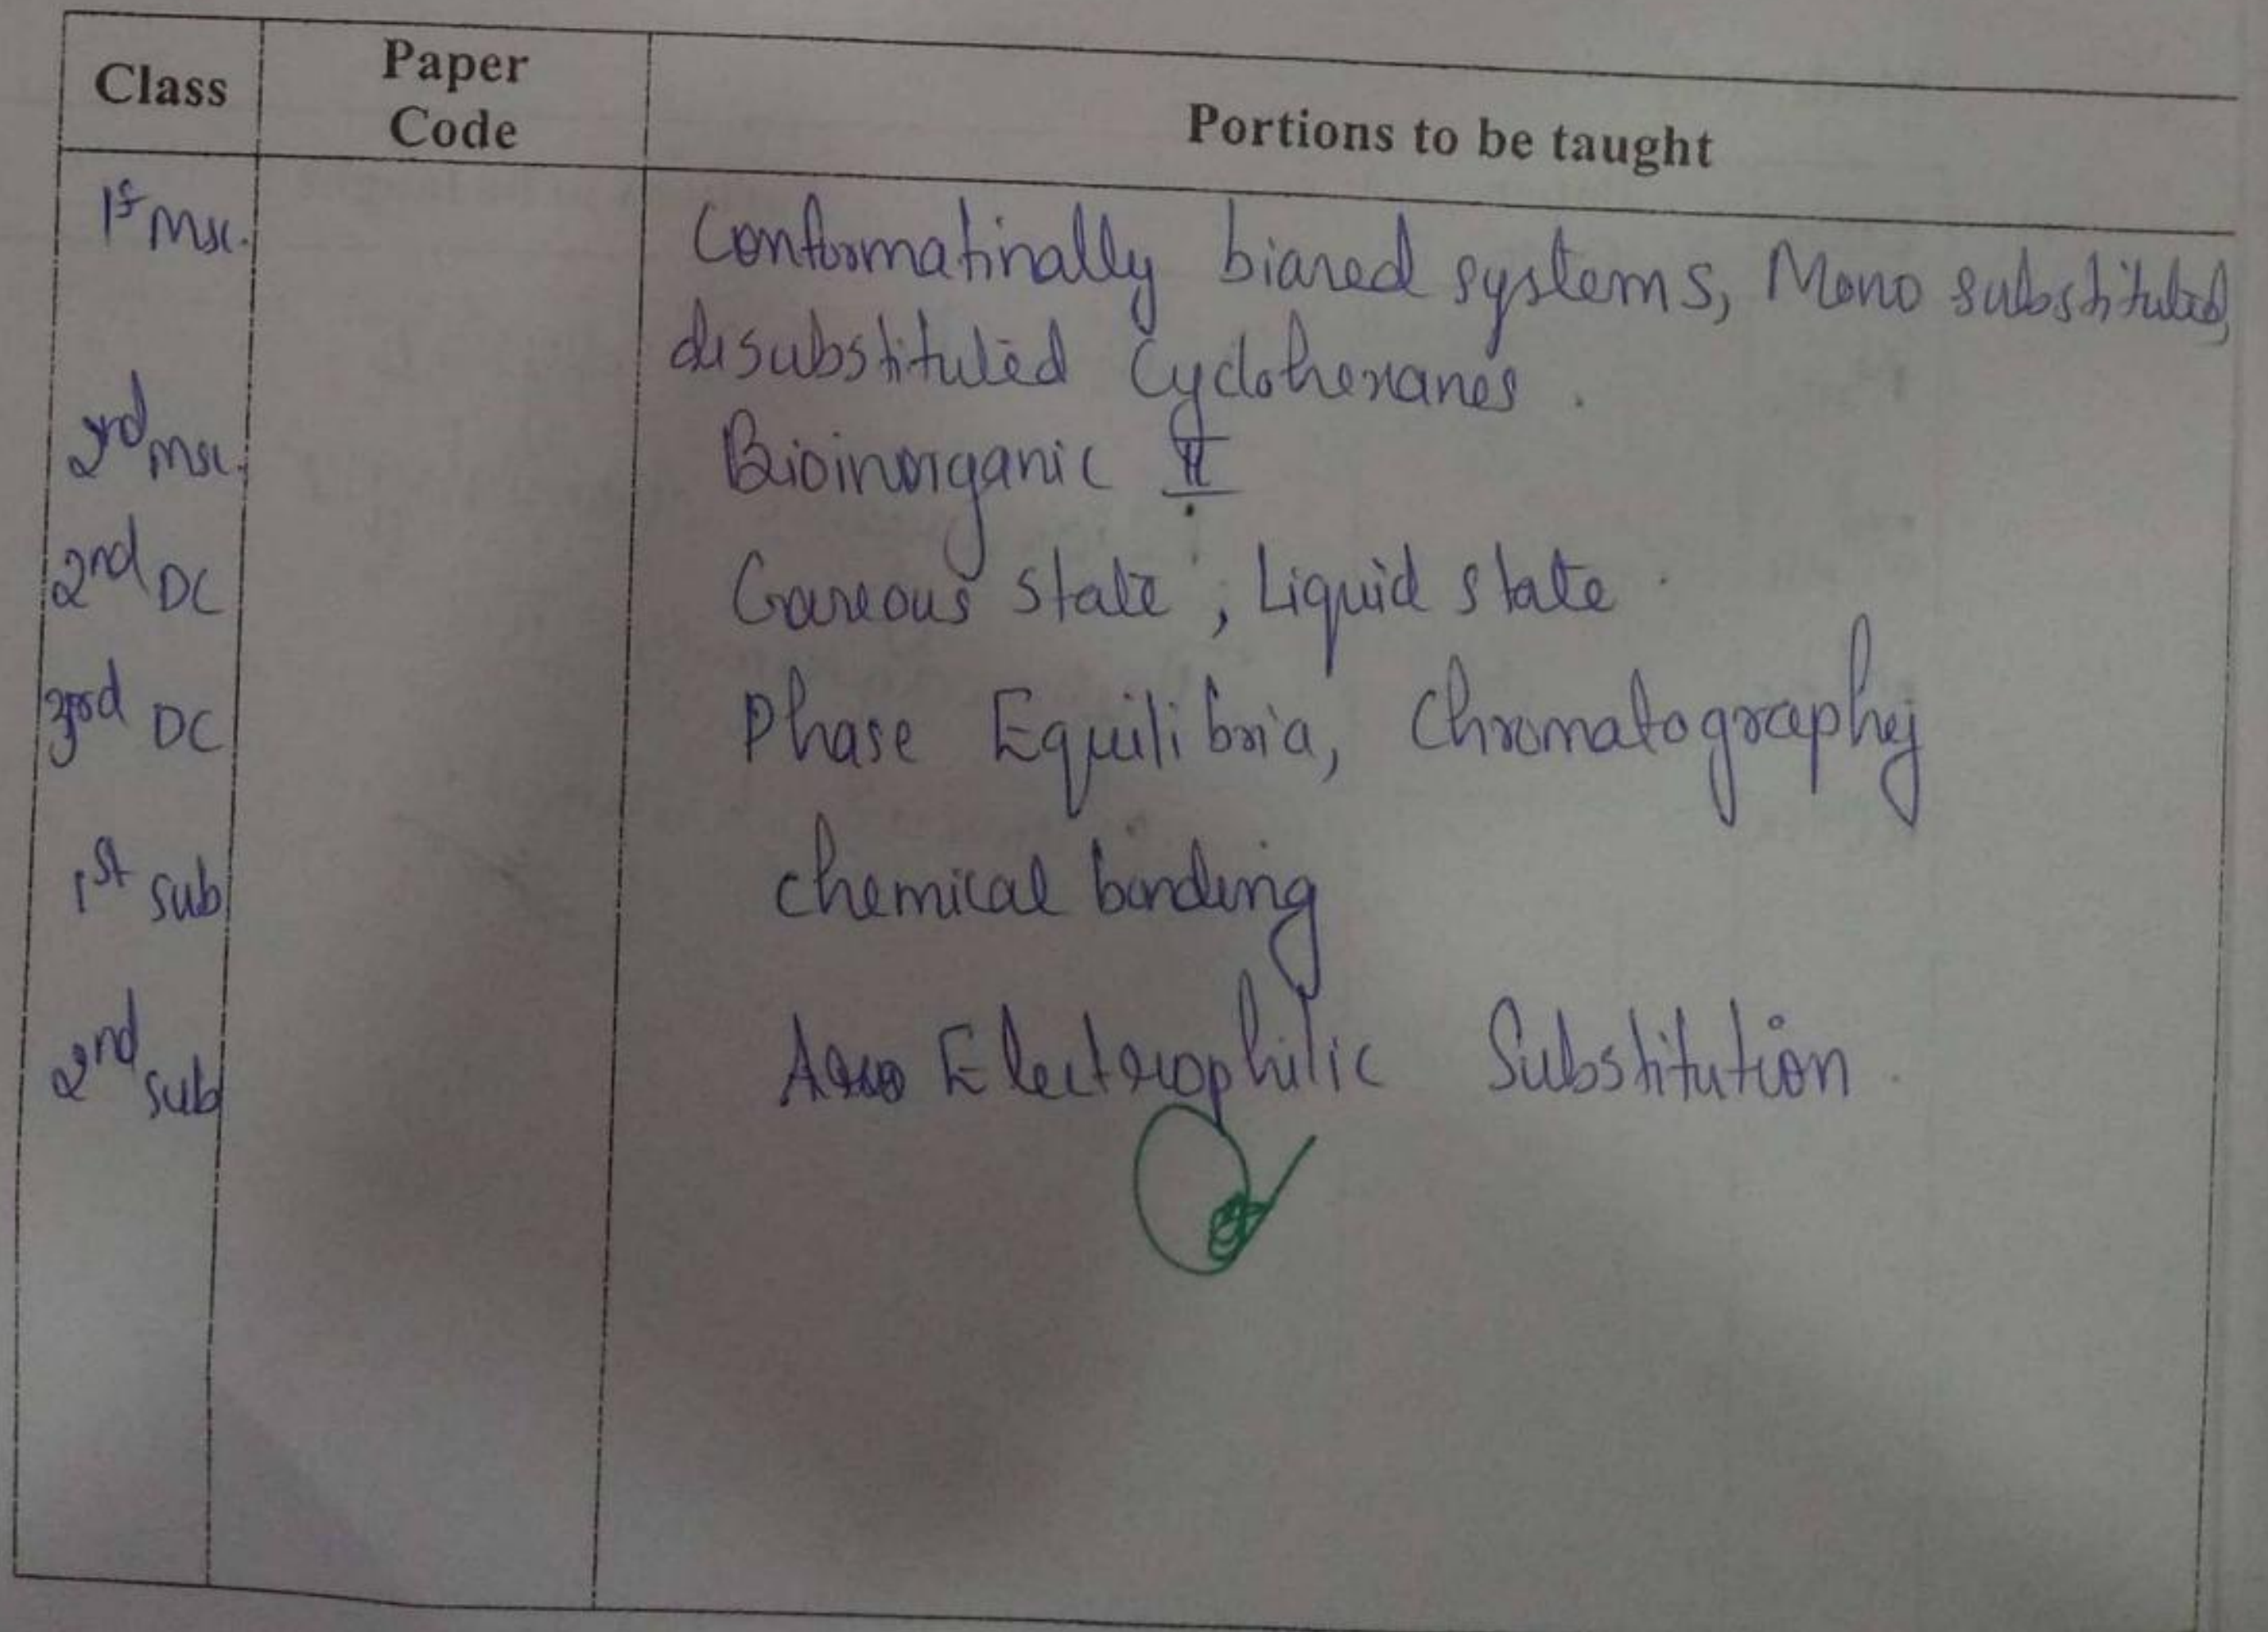 Class Paper Code Portions to be taught
1st Msc. Conformatinally biased systems, Mono substituted,
disubstituted Cyclohexanes.
2rd Msc. Bioinorganic II
2nd DC Gaseous state, Liquid state.
3rd DC Phase Equilibria, Chromatography
1st sub chemical bonding
2nd sub Electrophilic Substitution.